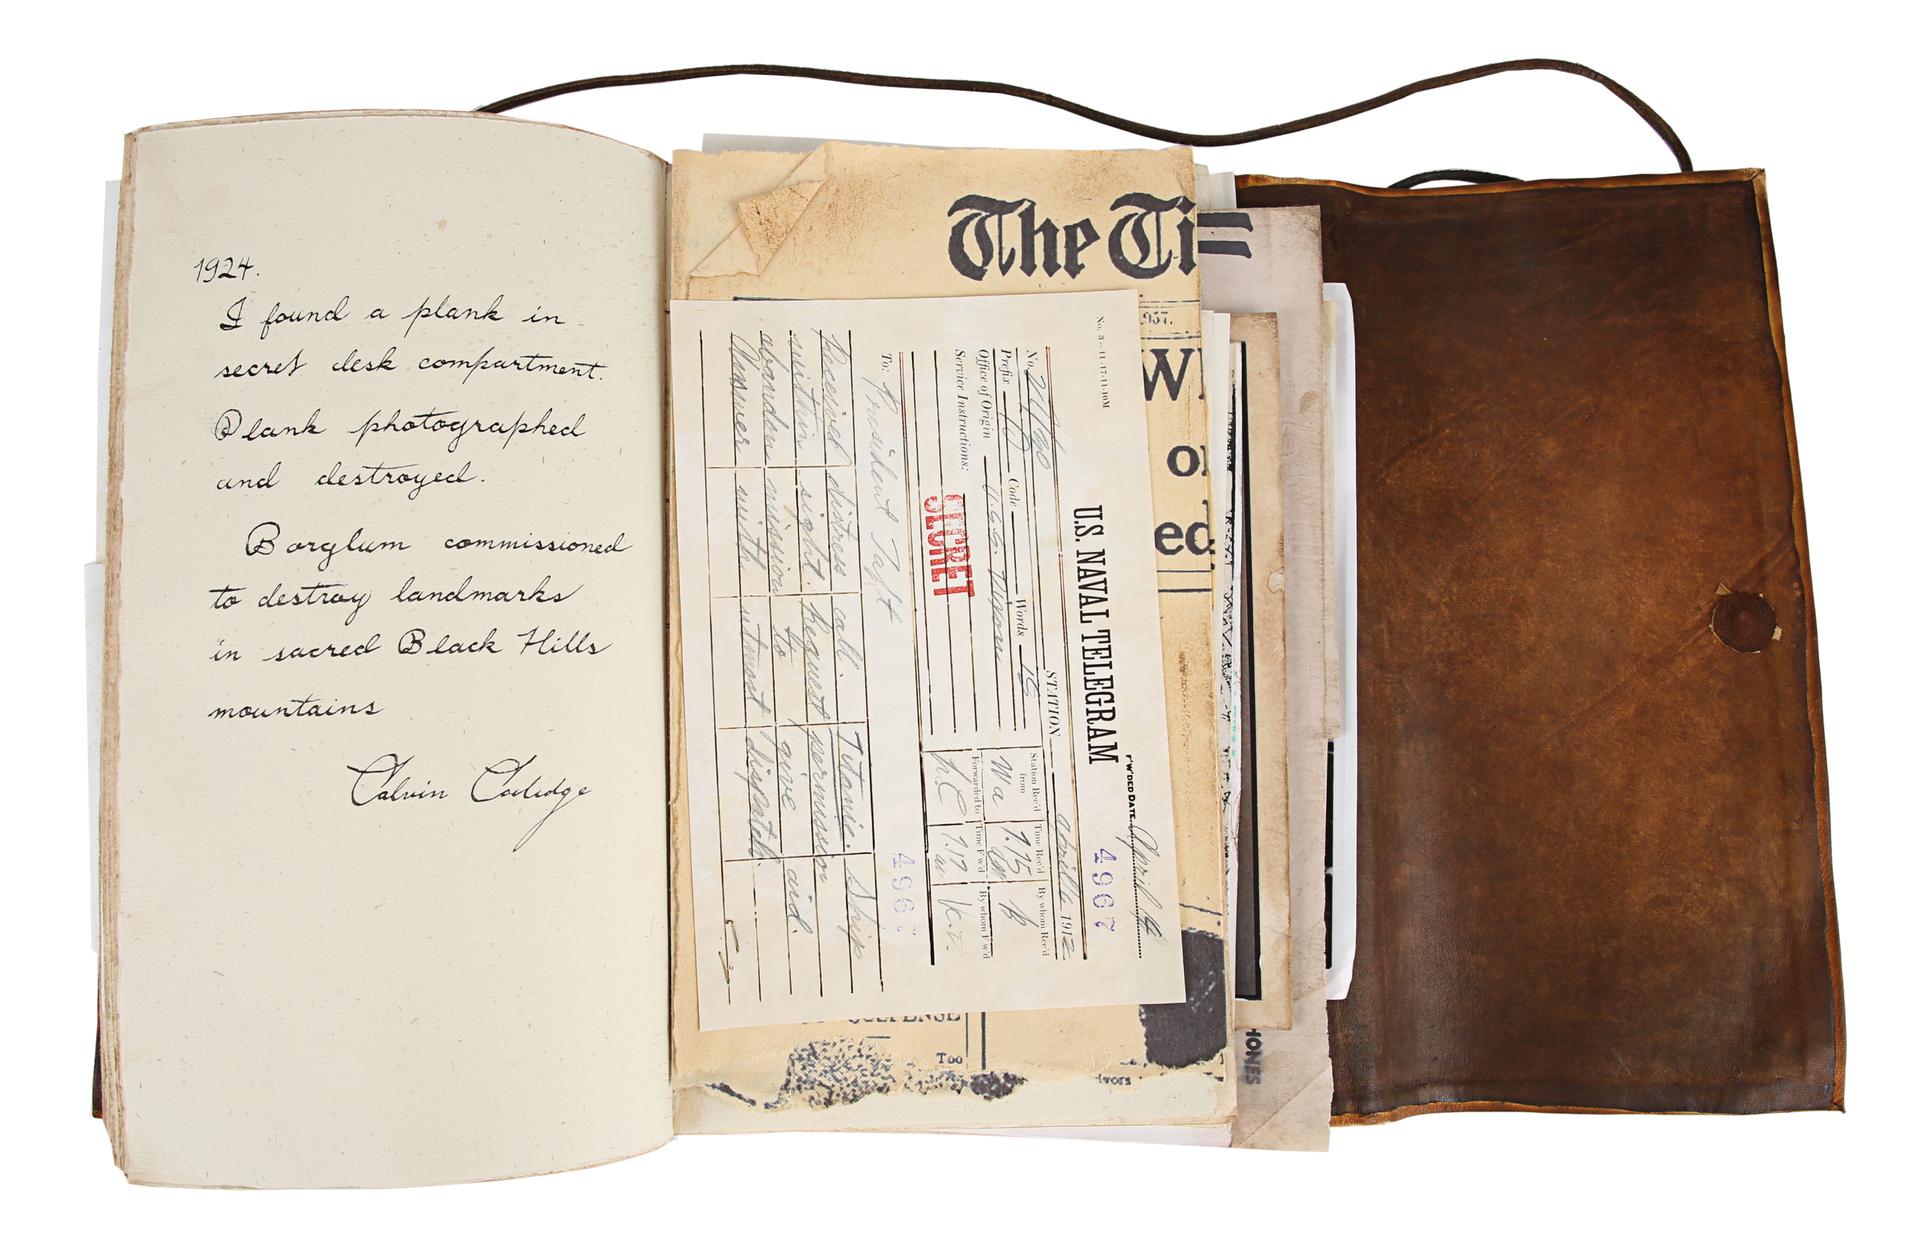 1924.
I found a plank in
secret desk compartment.
Plank photographed
and destroyed.
Borglum commissioned
to destroy landmarks
in sacred Black Hills
mountains
Calvin Coolidge
The Ti
1937.
W
ed
No. 3—11-17-11-10M
U.S. NAVAL TELEGRAM
F'W'DED DATE April 14
4967
STATION
1912
No.
Prefix
Code
Words
Office of Origin U.S.S.
Service Instructions:
Station Rec'd from
Time Rec'd
By whom Rec'd
Wa
7.15
Forwarded to
Time F'w'd
By whom F'w'd
7.17
SECRET
4967
To: President Taft
Received distress call. Titanic. Ship
within sight. Request permission
abandon mission to give aid.
Answer with utmost dispatch.
SUSPENSE
Too
vors
HONES